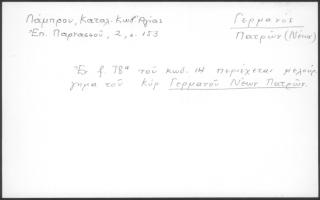 Λάμπρου, Καταλ. Κωδ. Αγίας
Επ. Παρνασσού, 2, σ. 153
Γερμανός
Πατρών (Νέων)
Εν f. 78α τού κωδ. 14 περιέχεται μελούρ
γημα τού κύρ Γερμανού Νέων Πατρών.